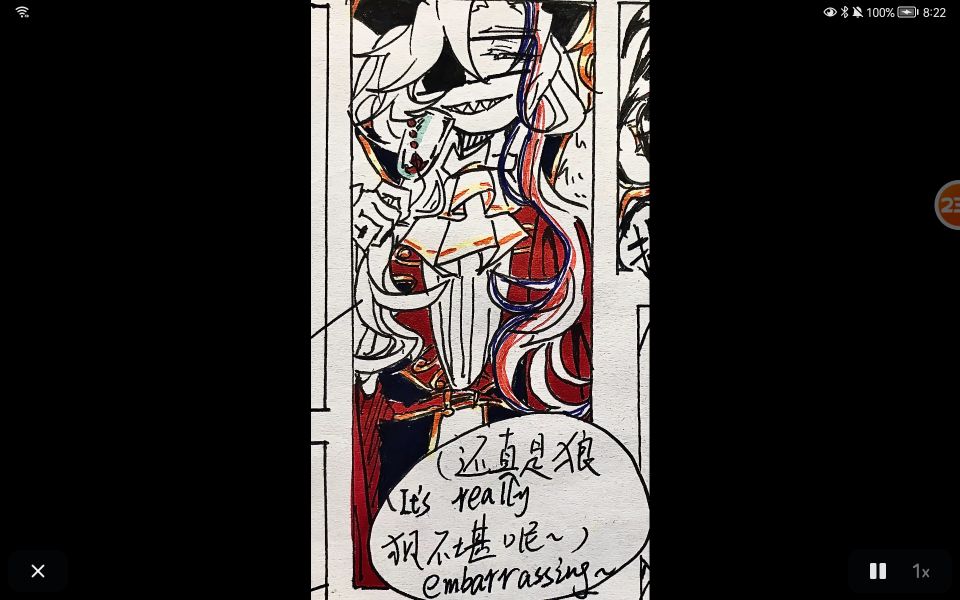 100% 8:22
23
(还真是狼
(It's really
狈不堪呢~)
embarrassing~
1x